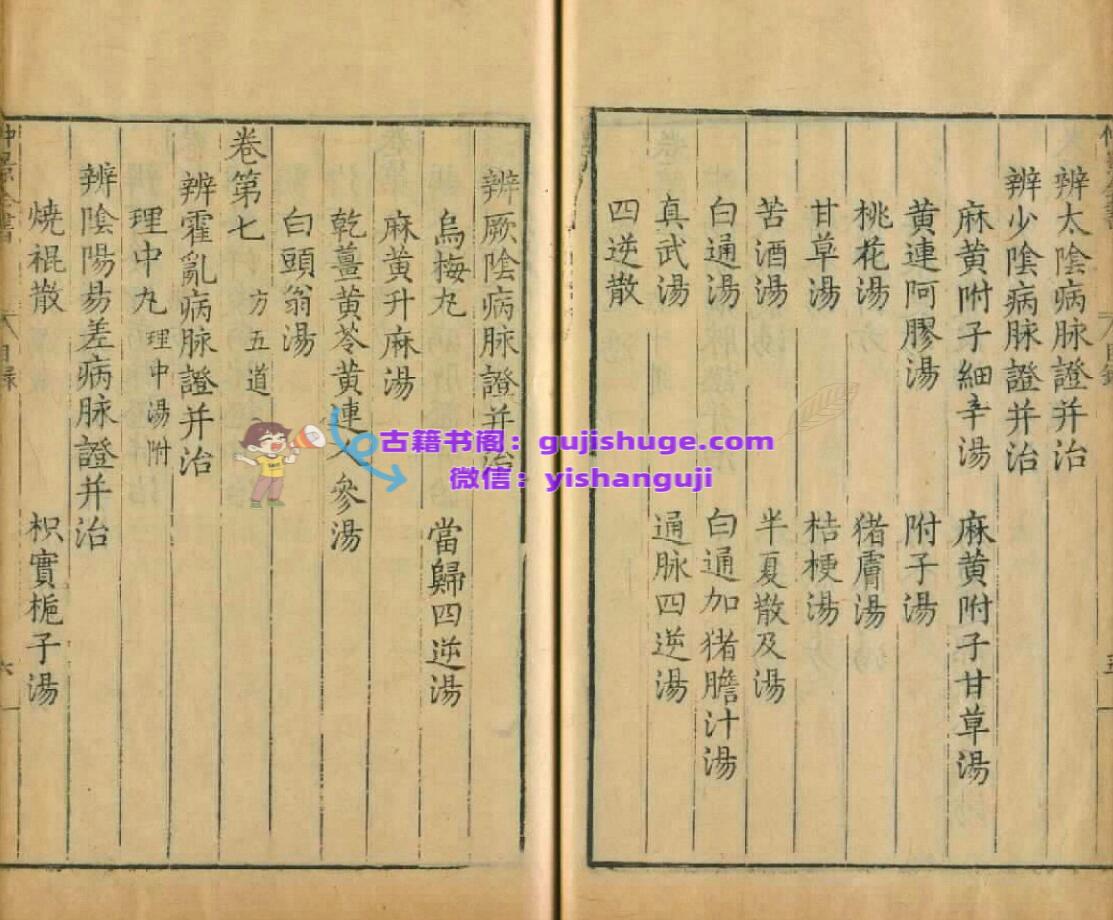 辨太陰病脉證并治
辨少陰病脉證并治
麻黄附子細辛湯 麻黄附子甘草湯
黄連阿膠湯 附子湯
桃花湯 猪膚湯
甘草湯 桔梗湯
苦酒湯 半夏散及湯
白通湯 白通加猪膽汁湯
真武湯 通脉四逆湯
四逆散
辨厥陰病脉證并治
烏梅丸 當歸四逆湯
麻黄升麻湯
乾薑黄芩黄連人參湯
白頭翁湯
卷第七 方五道
辨霍亂病脉證并治
理中丸 理中湯附
辨陰陽易差病脉證并治
燒裩散 枳實梔子湯
仲景全書 目録 六
古籍书阁：gujishuge.com
微信：yishanguji